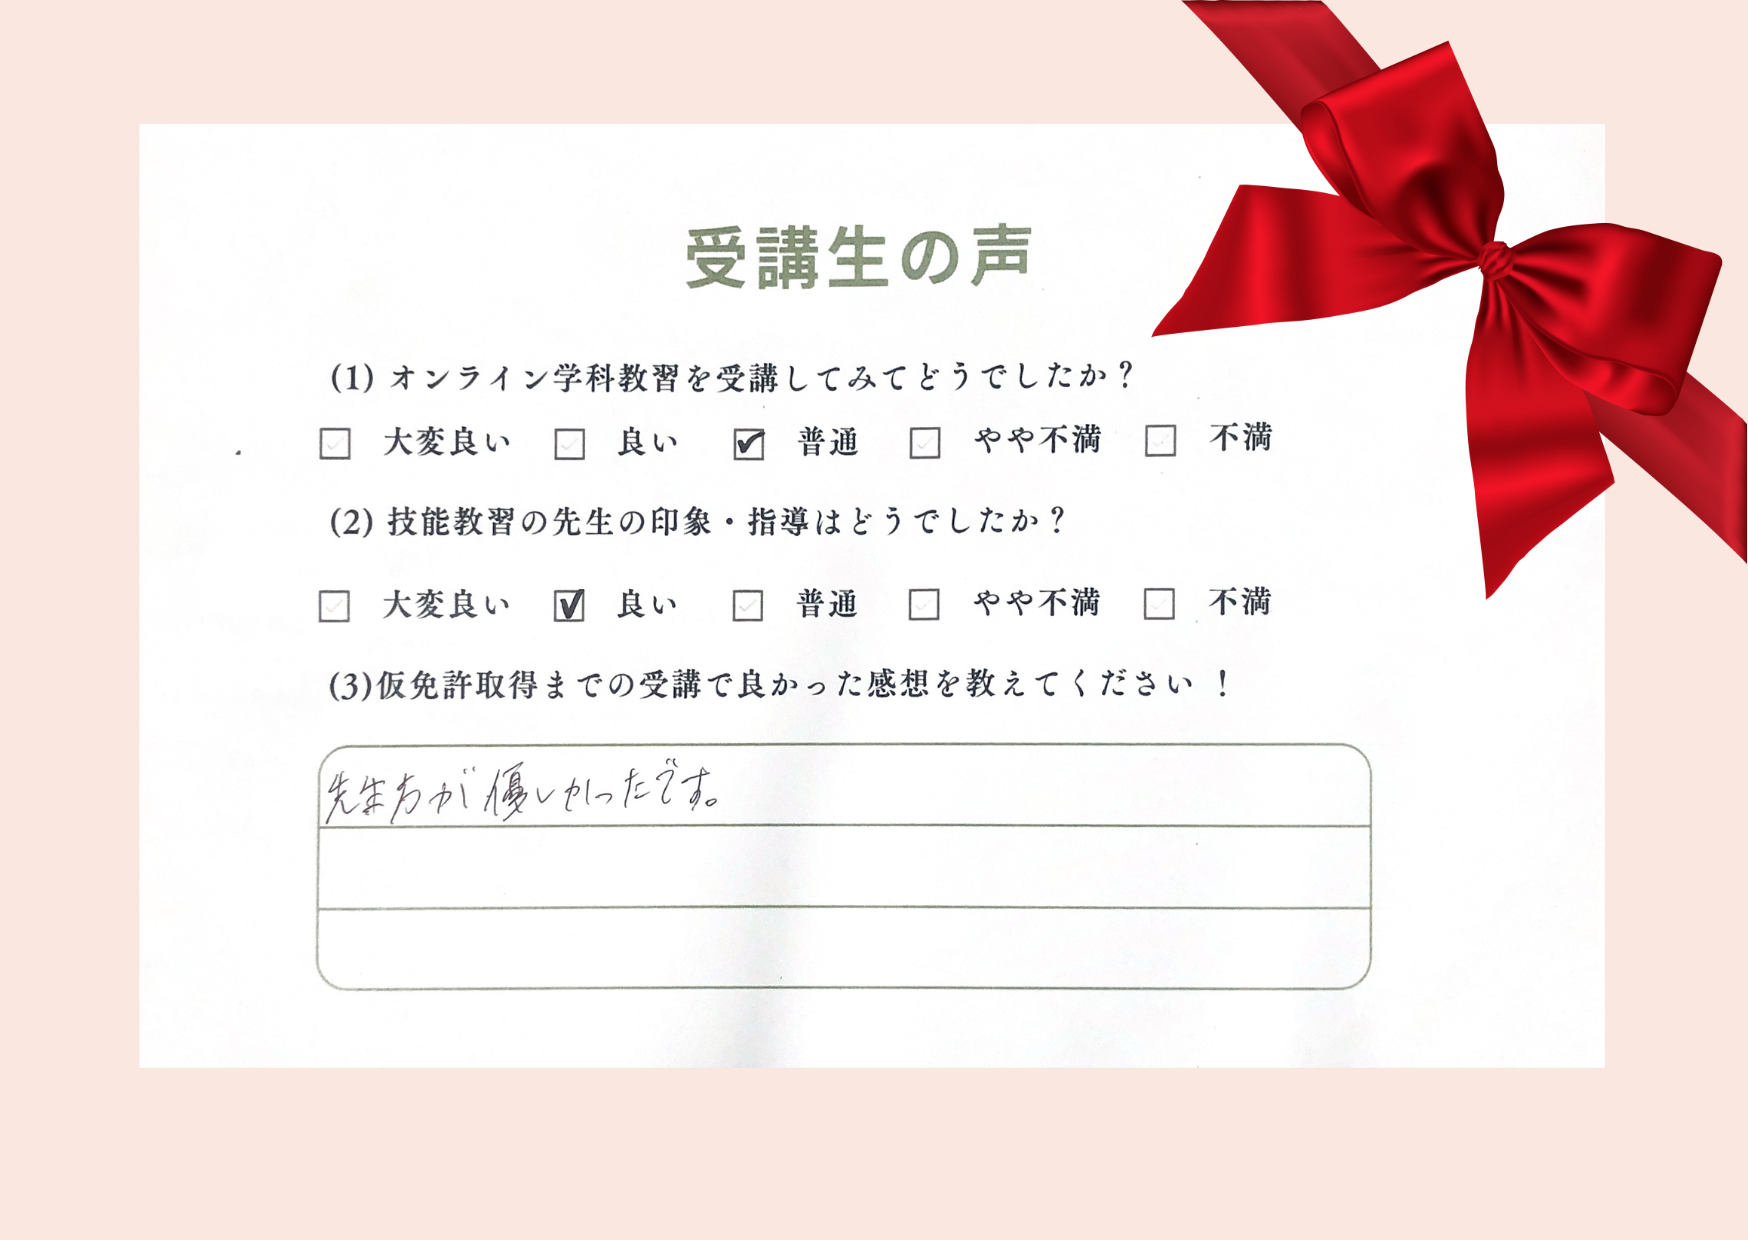 受講生の声
(1) オンライン学科教習を受講してみてどうでしたか？
大変良い 良い 普通 やや不満 不満
(2) 技能教習の先生の印象・指導はどうでしたか？
大変良い 良い 普通 やや不満 不満
(3)仮免許取得までの受講で良かった感想を教えてください！
先生方が優しかったです。